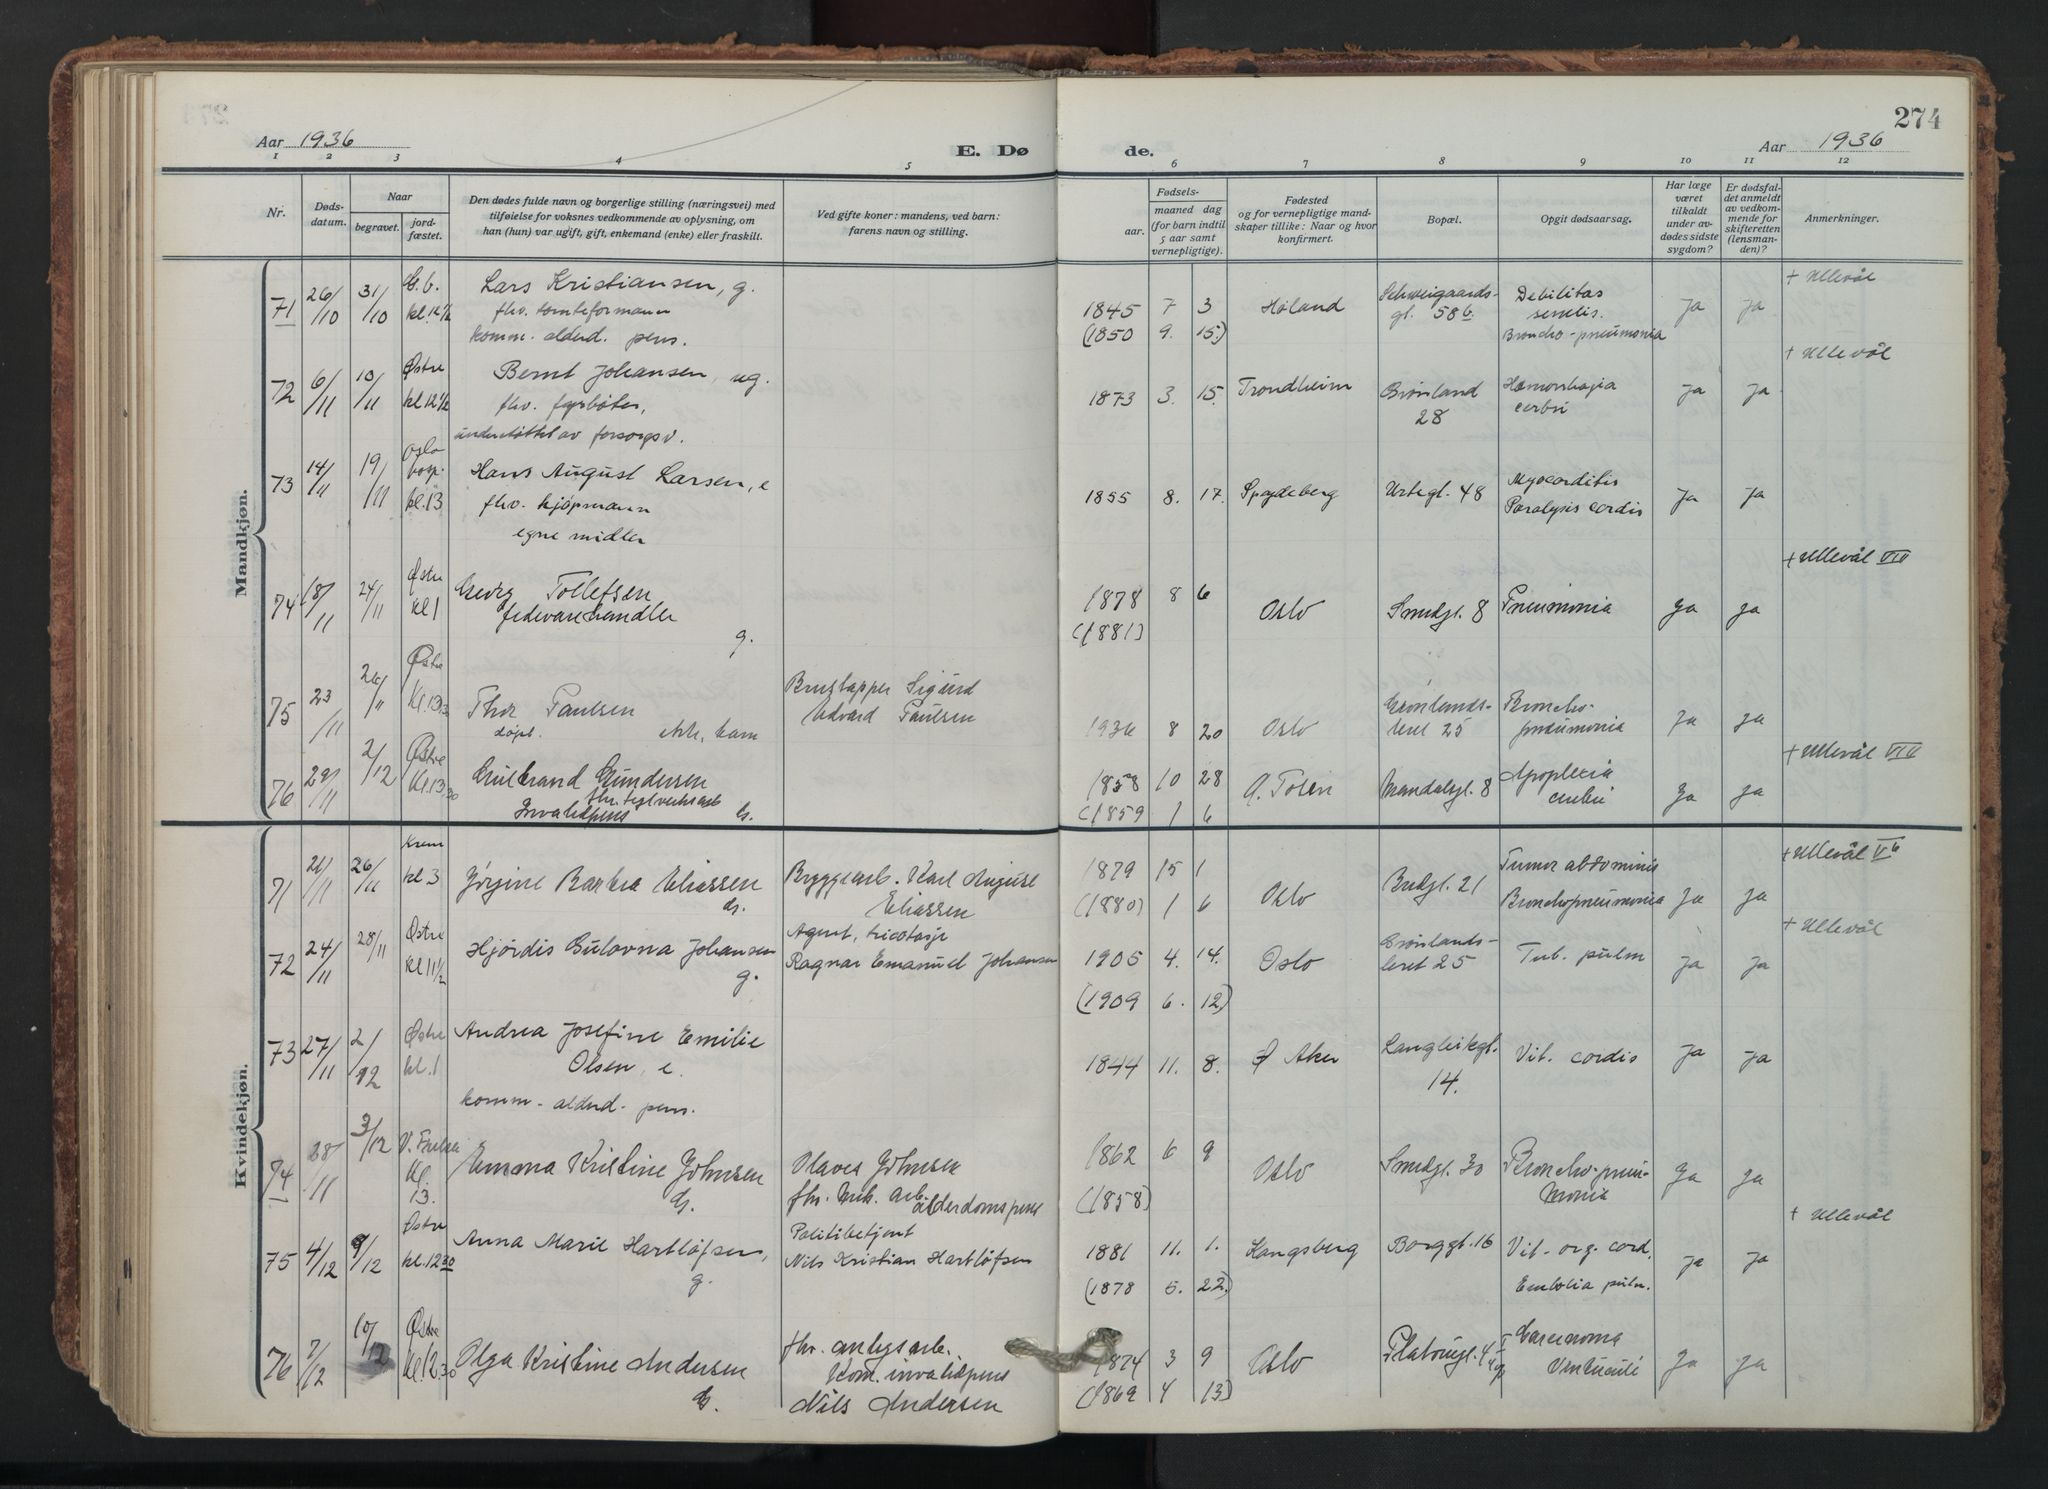 274
Aar 1936
E. Dø
de.
Aar 1936
1 2 3 4 5 6 7 8 9 10 11 12
Nr.
Døds-
datum.
Naar
begravet.
jord-
fæstet.
Den dødes fulde navn og borgerlige stilling (næringsvei) med
tilføielse for voksnes vedkommende av oplysning, om
han (hun) var ugift, gift, enkemand (enke) eller fraskilt.
Ved gifte koner: mandens, ved barn:
farens navn og stilling.
Fødsels-
aar.
maaned dag
(for barn indtil
5 aar samt
vernepligtige).
Fødested
og for vernepligtige mand-
skaper tillike: Naar og hvor
konfirmert.
Bopæl.
Opgit dødsaarsag.
Har læge
været
tilkaldt
under av-
dødes sidste
sygdom?
Er dødsfal-
det anmeldt
av vedkom-
mende for
skifteretten
(lensman-
den)?
Anmerkninger.
Mandkjøn.
+ Ullevål
71 26/10 31/10 G.b. kl.12½ Lars Kristiansen, g. 1845 7 3 Høland Schweigaards- Debilitas ja ja
fhv. tomteformann gt. 58b. senilis.
komm. alderd. pens. (1850 9. 15.) Broncho-pneumonia
+ Ullevål
72 6/11 10/11 Østre kl.12½ Bernt Johansen, ug. 1873 3. 15. Trondheim Grønland Hæmorrhagia ja ja
fhv. fyrbøter, 28 cerbri
understøttet av forsorgsv.
73 14/11 19/11 Oslo hosp. kl.13 Hans August Larsen, e 1855 8. 17. Spydeberg Urtegt. 48 Myocarditis ja ja
fhv. kjøpmann Paralysis cordis
egne midler
+ Ullevål VIII
74 18/11 24/11 Østre kl 1 Georg Tollefsen 1878 8 6 Oslo Smedgt. 8 Pneumonia Ja ja
fedevarehandler (1881)
g.
75 23/11 26/11 Østre Kl.13 30 Thor Paulsen Brustapper Sigurd 1936 8 20 Oslo Grønlands- Broncho- Ja ja
døpt. Edvard Paulsen leret 25 pneumonia
+ Ullevål VIII
76 29/11 2/12 Østre Kl.13 30 Gulbrand Gundersen 1858 10 28 Ø. Toten Mandalsgt. 8 Apoplexia Ja Ja
Invalidpens G. (1859 1 6 cerebri
Kvindekjøn.
+ Ullevål V 6
71 21/11 26/11 Krem kl 3 Jørgine Barbra Eliassen Bryggearb. Karl August 1879 15 1 Oslo Brugt. 21 Tumor abdominis Ja Ja
G. Eliassen (1880) 1 6 Bronchopneumonia
+ Ullevål
72 24/11 28/11 Østre kl 11½ Hjørdis Gulovna Johansen Agent, tricotasje 1905 4. 14. Oslo Grønlands- Tub. pulm ja ja
g. Ragnar Emanuel Johansen (1909 6. 12.) leret 25
73 27/11 2/12 Østre kl.1 Andrea Josefine Emilie 1844 11. 8. Ø Aker Langleikgt. Vit. cordis ja ja
Olsen, e. 14.
komm. alderd. pens.
74 28/11 3/12 V. Frelser Kl. 13. Emma Kristine Johnsen Olaves Johnsen 1862 6 9 Oslo Smedgt. 30 Broncho-pneu- Ja Ja
G. fhv. arb. alderdomspens (1858) monia
+ Ullevål
75 4/12 9/12 Østre kl.12 30 Anna Marie Hartløfsen, Politibetjent 1881 11. 1. Kongsberg Borggt. 16 Vit. org. cord. ja ja
g. Nils Kristian Hartløfsen (1878 5. 22.) Embolia pulm.
76 7/12 10/12 Østre Kl.12.30 Olga Kristine Andersen fhv. anlegsarb. 1874 3 9 Oslo Platousgt. 4 I Carcinoma Ja Ja
G. Kom. invalidpens (1869 4 13) Ventriculi
Nils Andersen